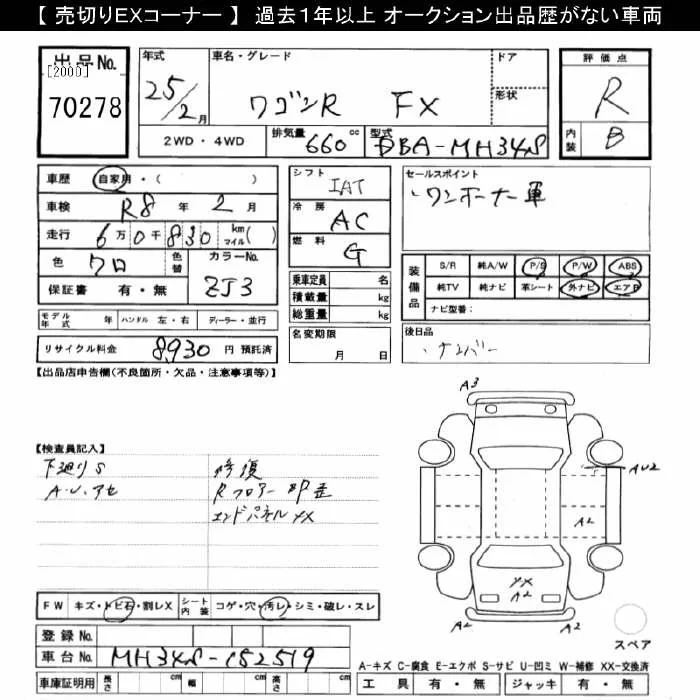 【 売切りEXコーナー 】 過去１年以上 オークション出品歴がない車両
出品No. [2000] 70278
年式 25/2月
車名・グレード ワゴンR FX
ドア
形状
2WD・4WD 排気量 660 cc 型式 DBA-MH34S
評価点 R
内装 B
車歴 自家用・( )
車検 R8 年 2 月
走行 6万0千830 km マイル( )
色 クロ 色替 カラーNo. ZJ3
保証書 有・無
モデル年式 年 ハンドル 左・右 ディーラー・並行
リサイクル料金 8930 円 預託済
シフト IAT
冷房 AC
燃料 G
乗車定員 名
積載量 kg
総重量 kg
名変期限 月 日
セールスポイント
・ワンオーナー車
装備品 S/R 純A/W P/S P/W ABS
純TV 純ナビ 革シート 外ナビ エアB
ナビ型番：
後日品
・ナンバー
【出品店申告欄(不良箇所・欠品・注意事項等)】
【検査員記入】
下廻りS
A.U.アセ
修復
Rフロアー部歪
エンドパネルXX
A3
AU2
A2
A2
XX
A2
A2
スペア
FW キズ・トビ石・割レX シート内装 コゲ・穴・汚レ・シミ・破レ・スレ
登録No.
車台No. MH34S-152519
車庫証明用 長さ cm 幅 cm 高さ cm
A-キズ C-腐食 E-エクボ S-サビ U-凹ミ W-補修 XX-交換済
工具 有・無 ジャッキ 有・無